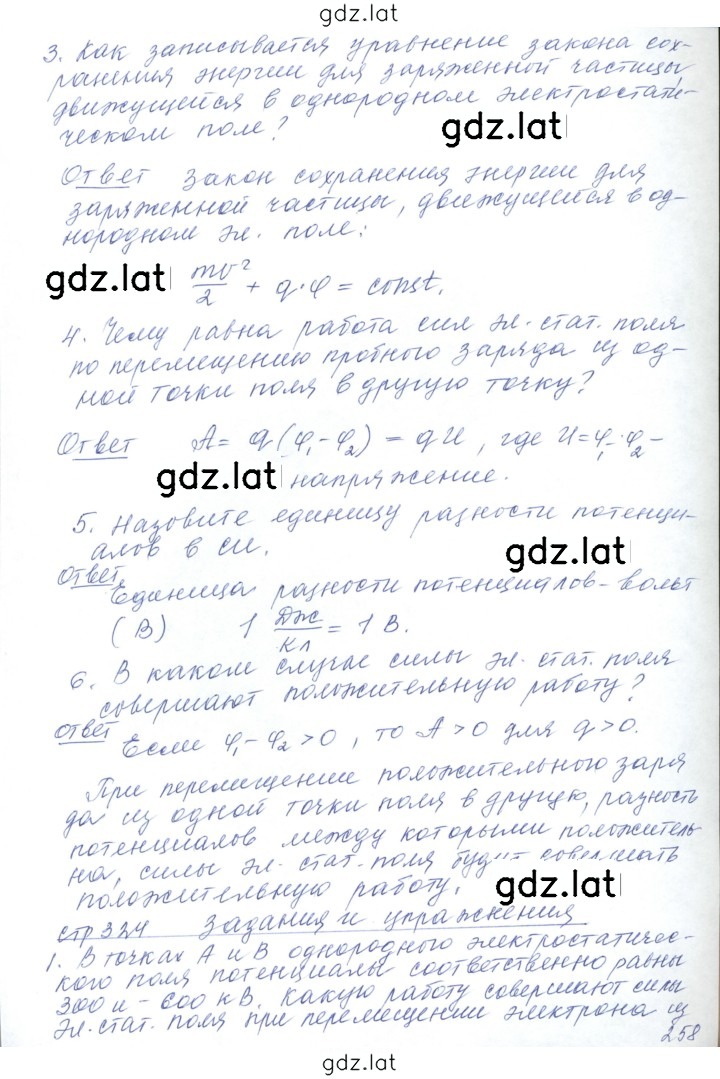 gdz.lat
3. Как записывается уравнение закона сох-
ранения энергии для заряженной частицы,
движущейся в однородном электростати-
ческом поле?
gdz.lat
Ответ Закон сохранения энергии для
заряженной частицы, движущейся в од-
нородном эл. поле:
gdz.lat
mv²/2 + q·φ = const.
4. Чему равна работа сил эл. стат. поля
по перемещению пробного заряда из од-
ной точки поля в другую точку?
Ответ A = q(φ₁-φ₂) = qU, где U=φ₁·φ₂ –
gdz.lat напряжение.
5. Назовите единицу разности потенци-
алов в СИ.
gdz.lat
Ответ
Единица разности потенциалов - вольт
(В) 1 Дж/Кл = 1 В.
6. В каком случае силы эл. стат. поля
совершают положительную работу?
Ответ
Если φ₁-φ₂ > 0, то A > 0 для q > 0.
При перемещении положительного заря
да из одной точки поля в другую, разность
потенциалов между которыми положитель
на, силы эл. стат. поля будут совершать
положительную работу.
gdz.lat
стр 324 Задания и упражнения
1. В точках А и В однородного электростатичес-
кого поля потенциалы соответственно равны
300 и - 600 кВ. Какую работу совершают силы
эл. стат. поля при перемещении электрона из
258
gdz.lat